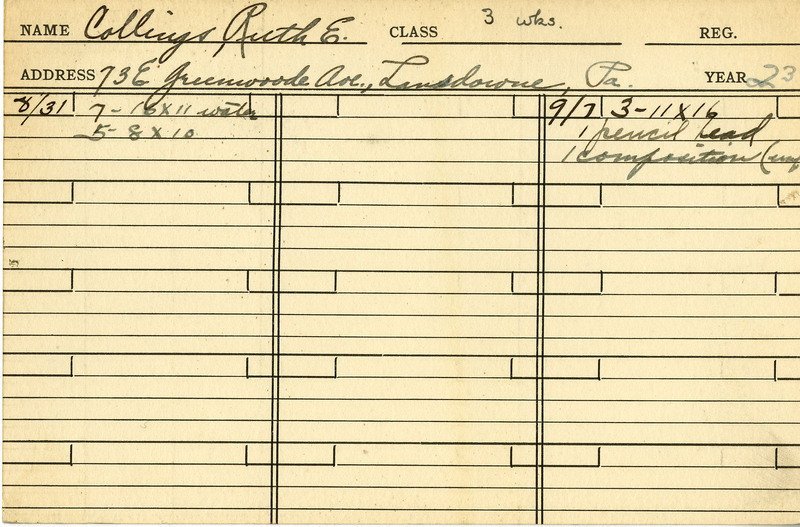 NAME Collings, Ruth E. CLASS 3 wks. REG.
ADDRESS 73 E Greenwoode Ave., Lansdowne, Pa. YEAR 23
8/31 7 - 16 X 11 water
5 - 8 X 10
9/7 3 - 11 X 16
1 pencil head
1 composition